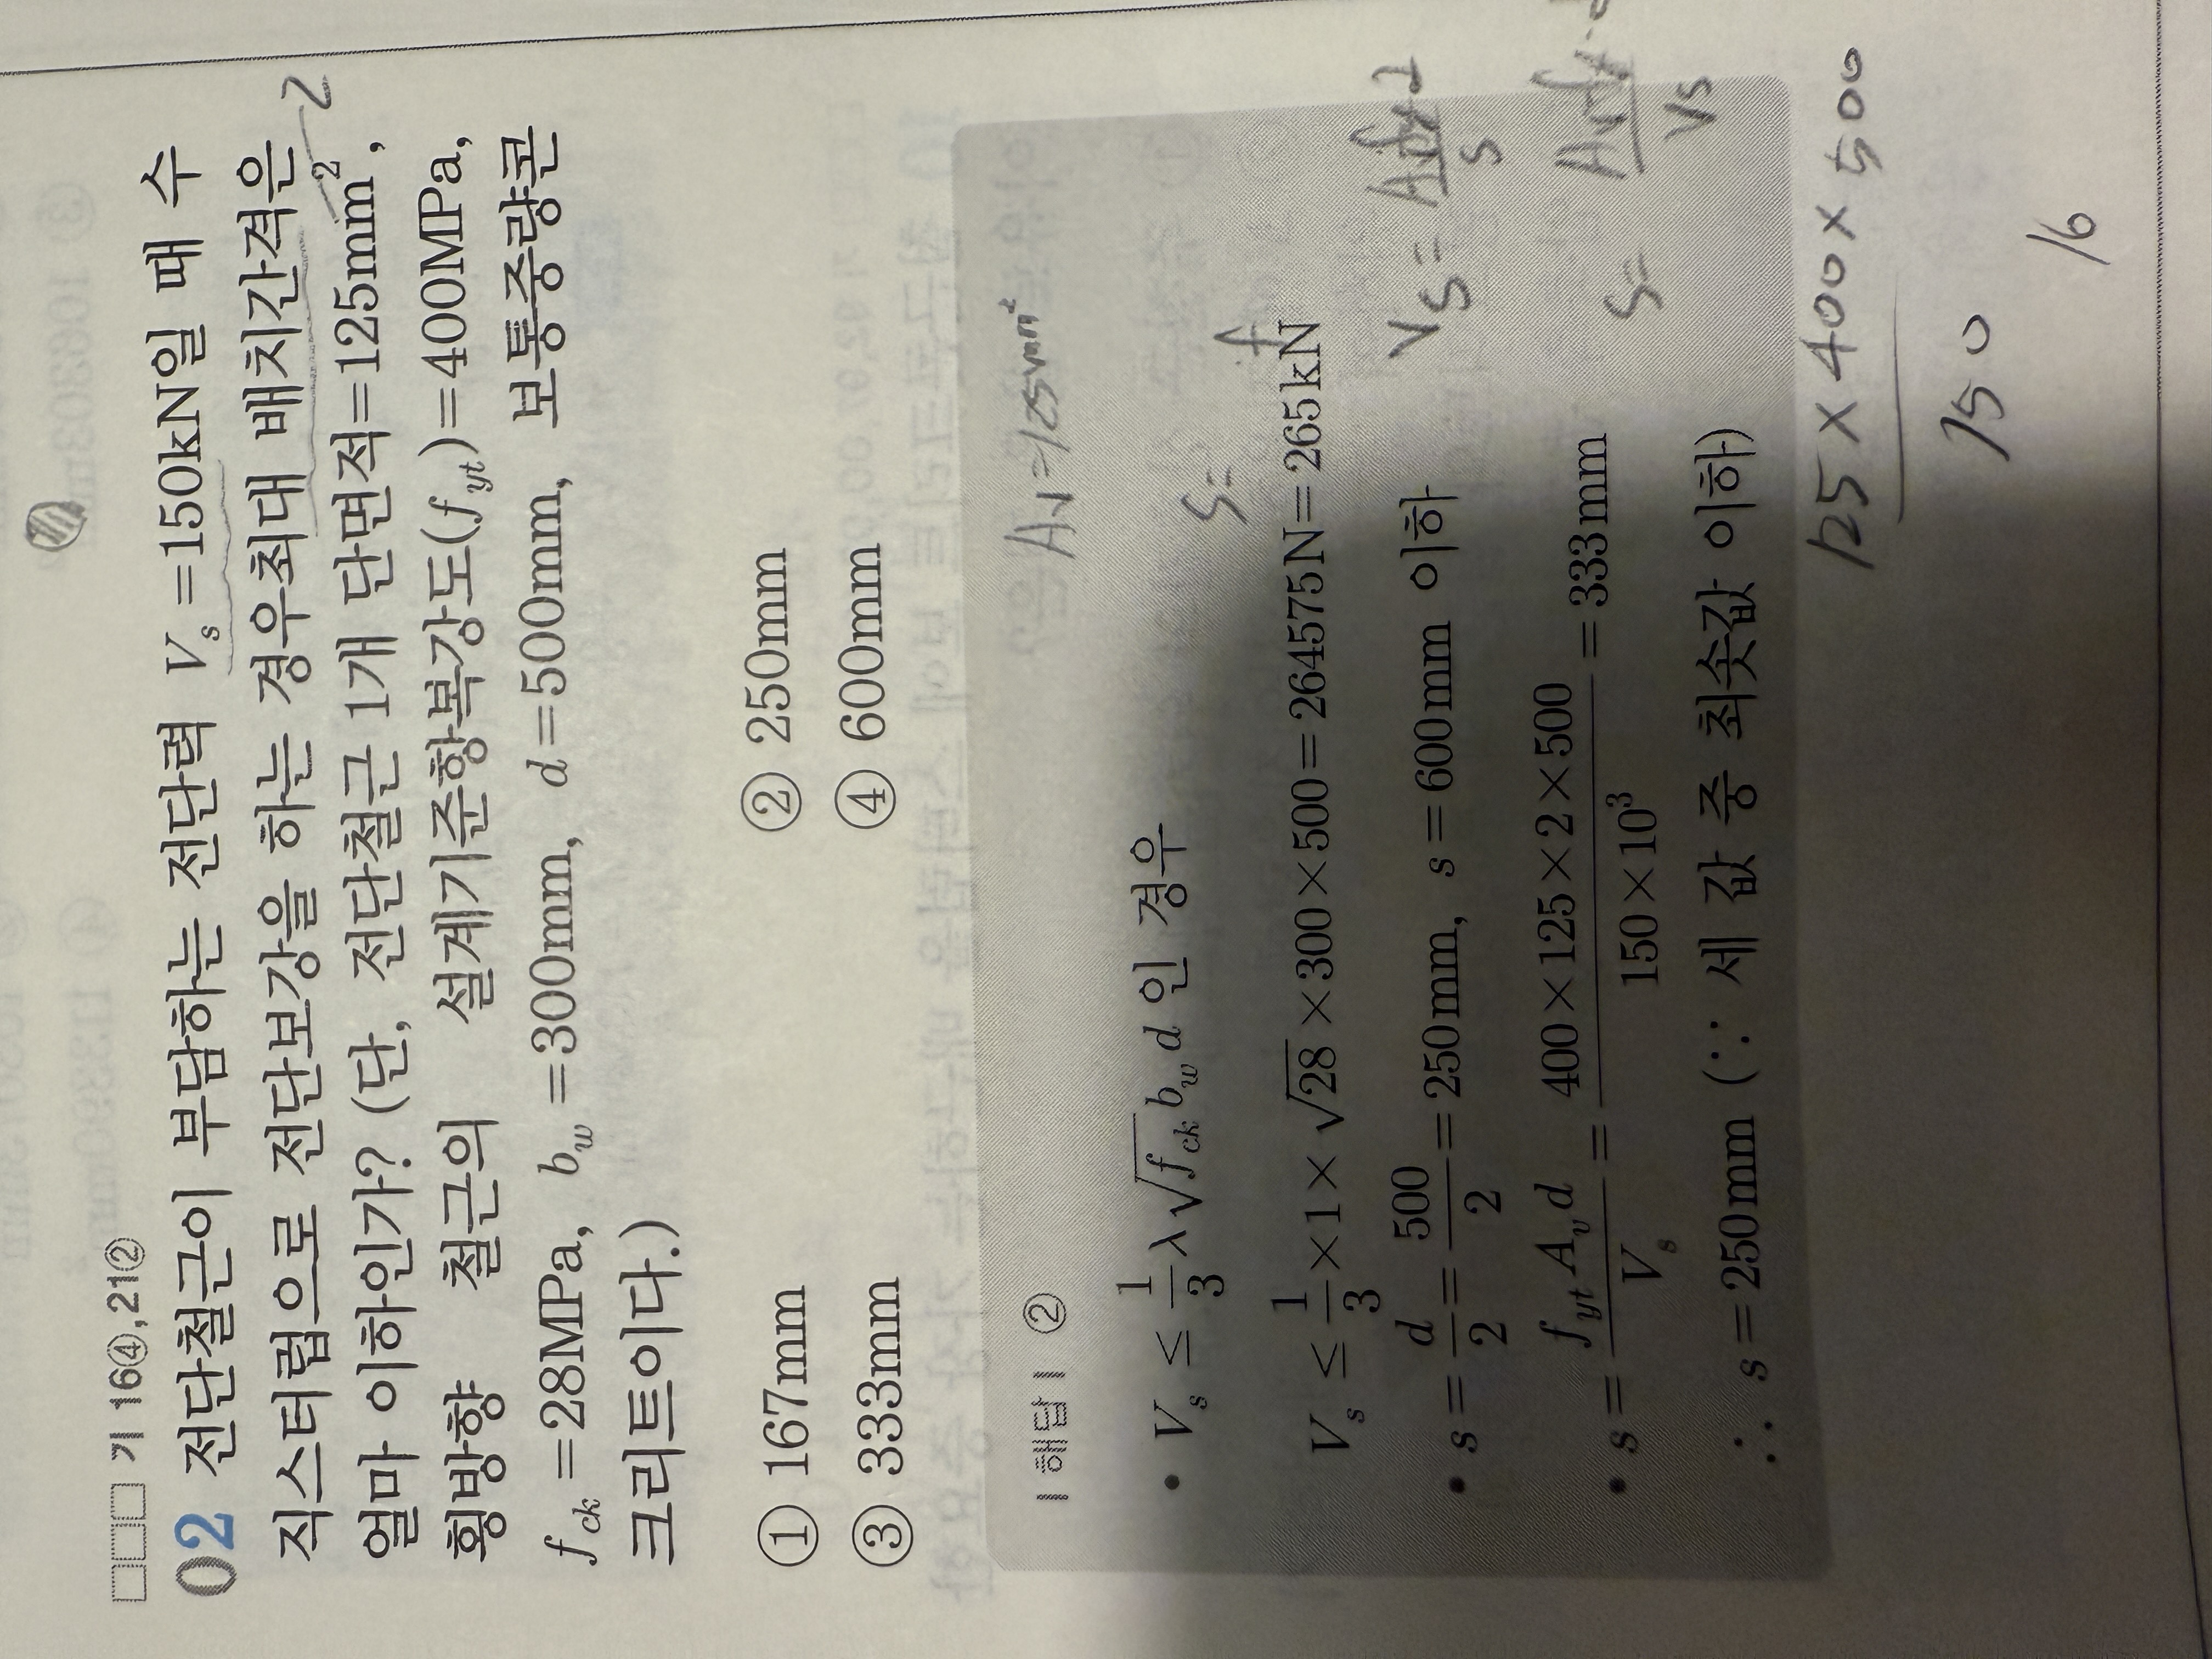 기 16④,21②
02 전단철근이 부담하는 전단력 V_s=150kN일 때 수
직스터럽으로 전단보강을 하는 경우최대 배치간격은
얼마 이하인가? (단, 전단철근 1개 단면적=125mm²,
횡방향 철근의 설계기준항복강도(f_yt)=400MPa,
f_ck=28MPa, b_w=300mm, d=500mm, 보통중량콘
크리트이다.)
2
① 167mm ② 250mm
③ 333mm ④ 600mm
| 해답 | ②
Av=125mm²
• V_s ≤ 1/3 λ√f_ck b_w d 인 경우
S=
V_s ≤ 1/3 ×1×√28×300×500=264575N=265kN
• s = d/2 = 500/2 = 250mm, s=600mm 이하
Vs =
• s = f_yt A_v d / V_s = 400×125×2×500 / 150×10³ = 333mm
S=
Vs
∴ s=250mm (∵ 세 값 중 최솟값 이하)
125×400×500
150
16